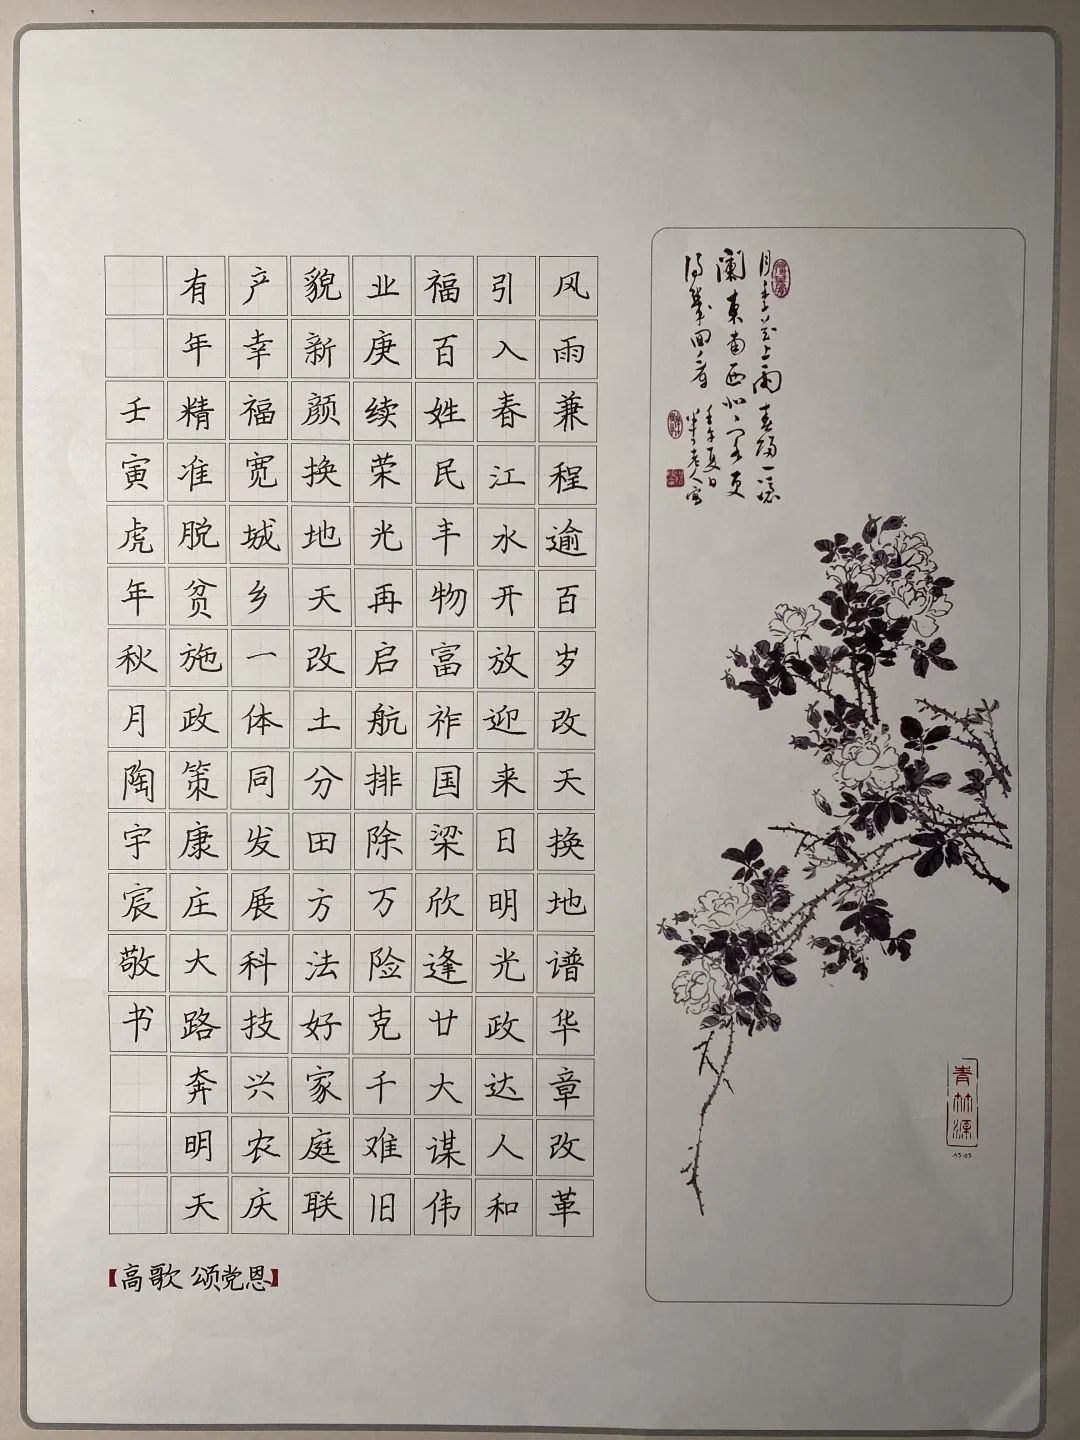 风雨兼程逾百岁改天换地谱华章改革
引入春江水开放迎来日明光政达人和
福百姓民丰物富祚国梁欣逢廿大谋伟
业庚续荣光再启航排除万险克千难旧
貌新颜换地天改土分田方法好家庭联
产幸福宽城乡一体同发展科技兴农庆
有年精准脱贫施政策康庄大路奔明天
壬寅虎年秋月陶宇宸敬书
【高歌 颂党恩】
月季花上雨春归一凭
阑东南西北客更
得几回看
壬午夏日
老人写
青林源
A5-05